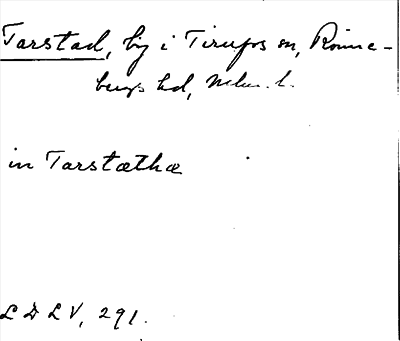 Tarstad, by i Tirups sn, Rönne-
bergs hd, Mlm. l.
in Tarstæthæ
L D L V, 291.